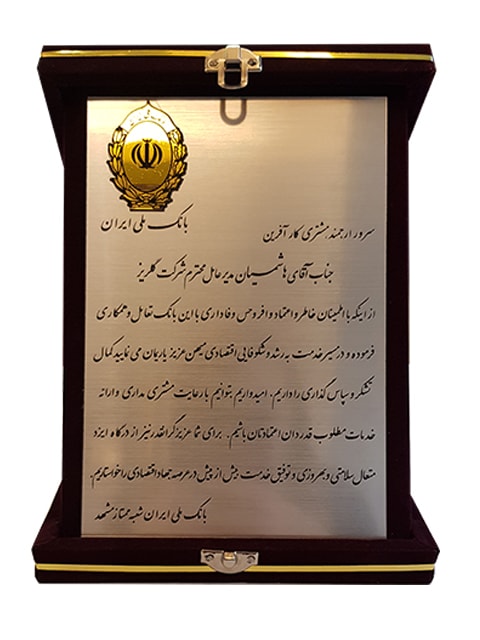 بانک ملی ایران
سرور ارجمند، مشتری کارآفرین
جناب آقای هاشمیان مدیرعامل محترم شرکت گلریز
از اینکه با اطمینان خاطر و اعتماد وافر و حس وفاداری با این بانک تعامل و همکاری
فرموده و در مسیر خدمت به رشد و شکوفایی اقتصادی میهن عزیز یاریمان می نمایید کمال
تشکر و سپاس گذاری را داریم. امیدواریم بتوانیم با رعایت مشتری مداری و ارائه
خدمات مطلوب قدردان اعتمادتان باشیم. برای شما عزیز گرانقدر نیز از درگاه ایزد
متعال سلامتی و بهروزی و توفیق خدمت بیش از پیش در عرصه جهاد اقتصادی را خواستاریم.
بانک ملی ایران شعبه ممتاز مشهد